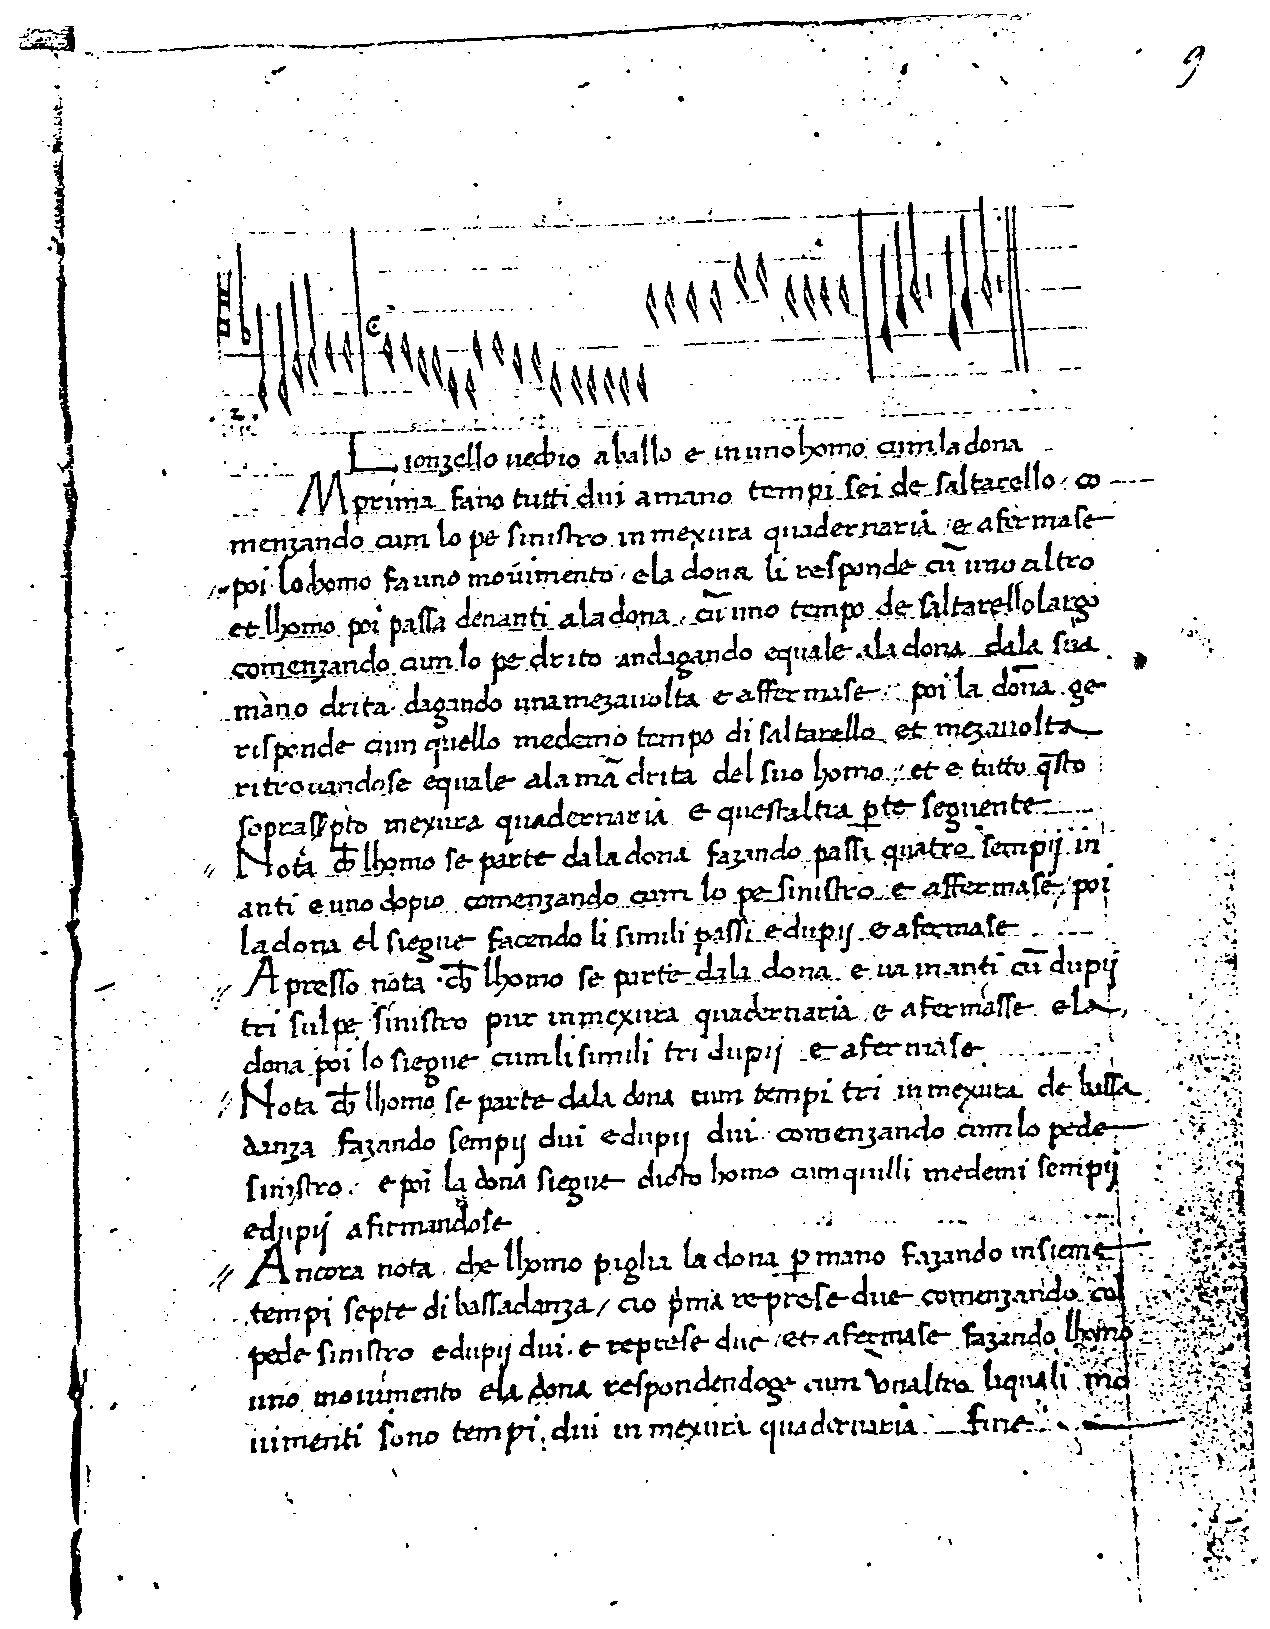 9
Lionzello uechio a ballo e in uno homo cum la dona
IMprima fano tutti dui a mano tempi sei de saltarello co
menzando cum lo pe sinistro in mexura quadernaria e afermase
poi lo homo fa uno mouimento e la dona li responde cū uno altro
et lhomo poi passa denanti a la dona cū uno tempo de saltarello largo
comenzando cum lo pe drito andagando equale a la dona da la sua
mano drita dagando una meza uolta e affermase poi la dona ge
risponde cum quello medemo tempo di saltarello et meza uolta
ritrouandose equale a la mā drita del suo homo et e tutto q̄sto
soprascripto mexura quadernaria e questaltra ꝑte seguente
Nota ch lhomo se parte da la dona fazando passi quatro sempij in
anti e uno dopio comenzando cum lo pe sinistro e affermase poi
la dona el siegue facendo li simili passi e dupij e afermase
Apresso nota ch lhomo se parte da la dona e ua inanti cū dupij
tri sul pe sinistro pur in mexura quadernaria e afermasse e la
dona poi lo siegue cum li simili tri dupij e afermase
Nota ch lhomo se parte da la dona cum tempi tri in mexura de bassa
danza fazando sempij dui e dupij dui comenzando cum lo pede
sinistro e poi la dona siegue dicto homo cum quilli medemi sempij
e dupij afirmandose
Ancora nota che lhomo piglia la dona ꝑ mano fazando insieme
tempi septe di bassadanza / cio pͥma represe due comenzando col
pede sinistro e dupij dui e represe due et afermase fazando lhomo
uno mouimento e la dona respondendoge cum vnaltro liquali mo
uimenti sono tempi dui in mexura quadernaria fine